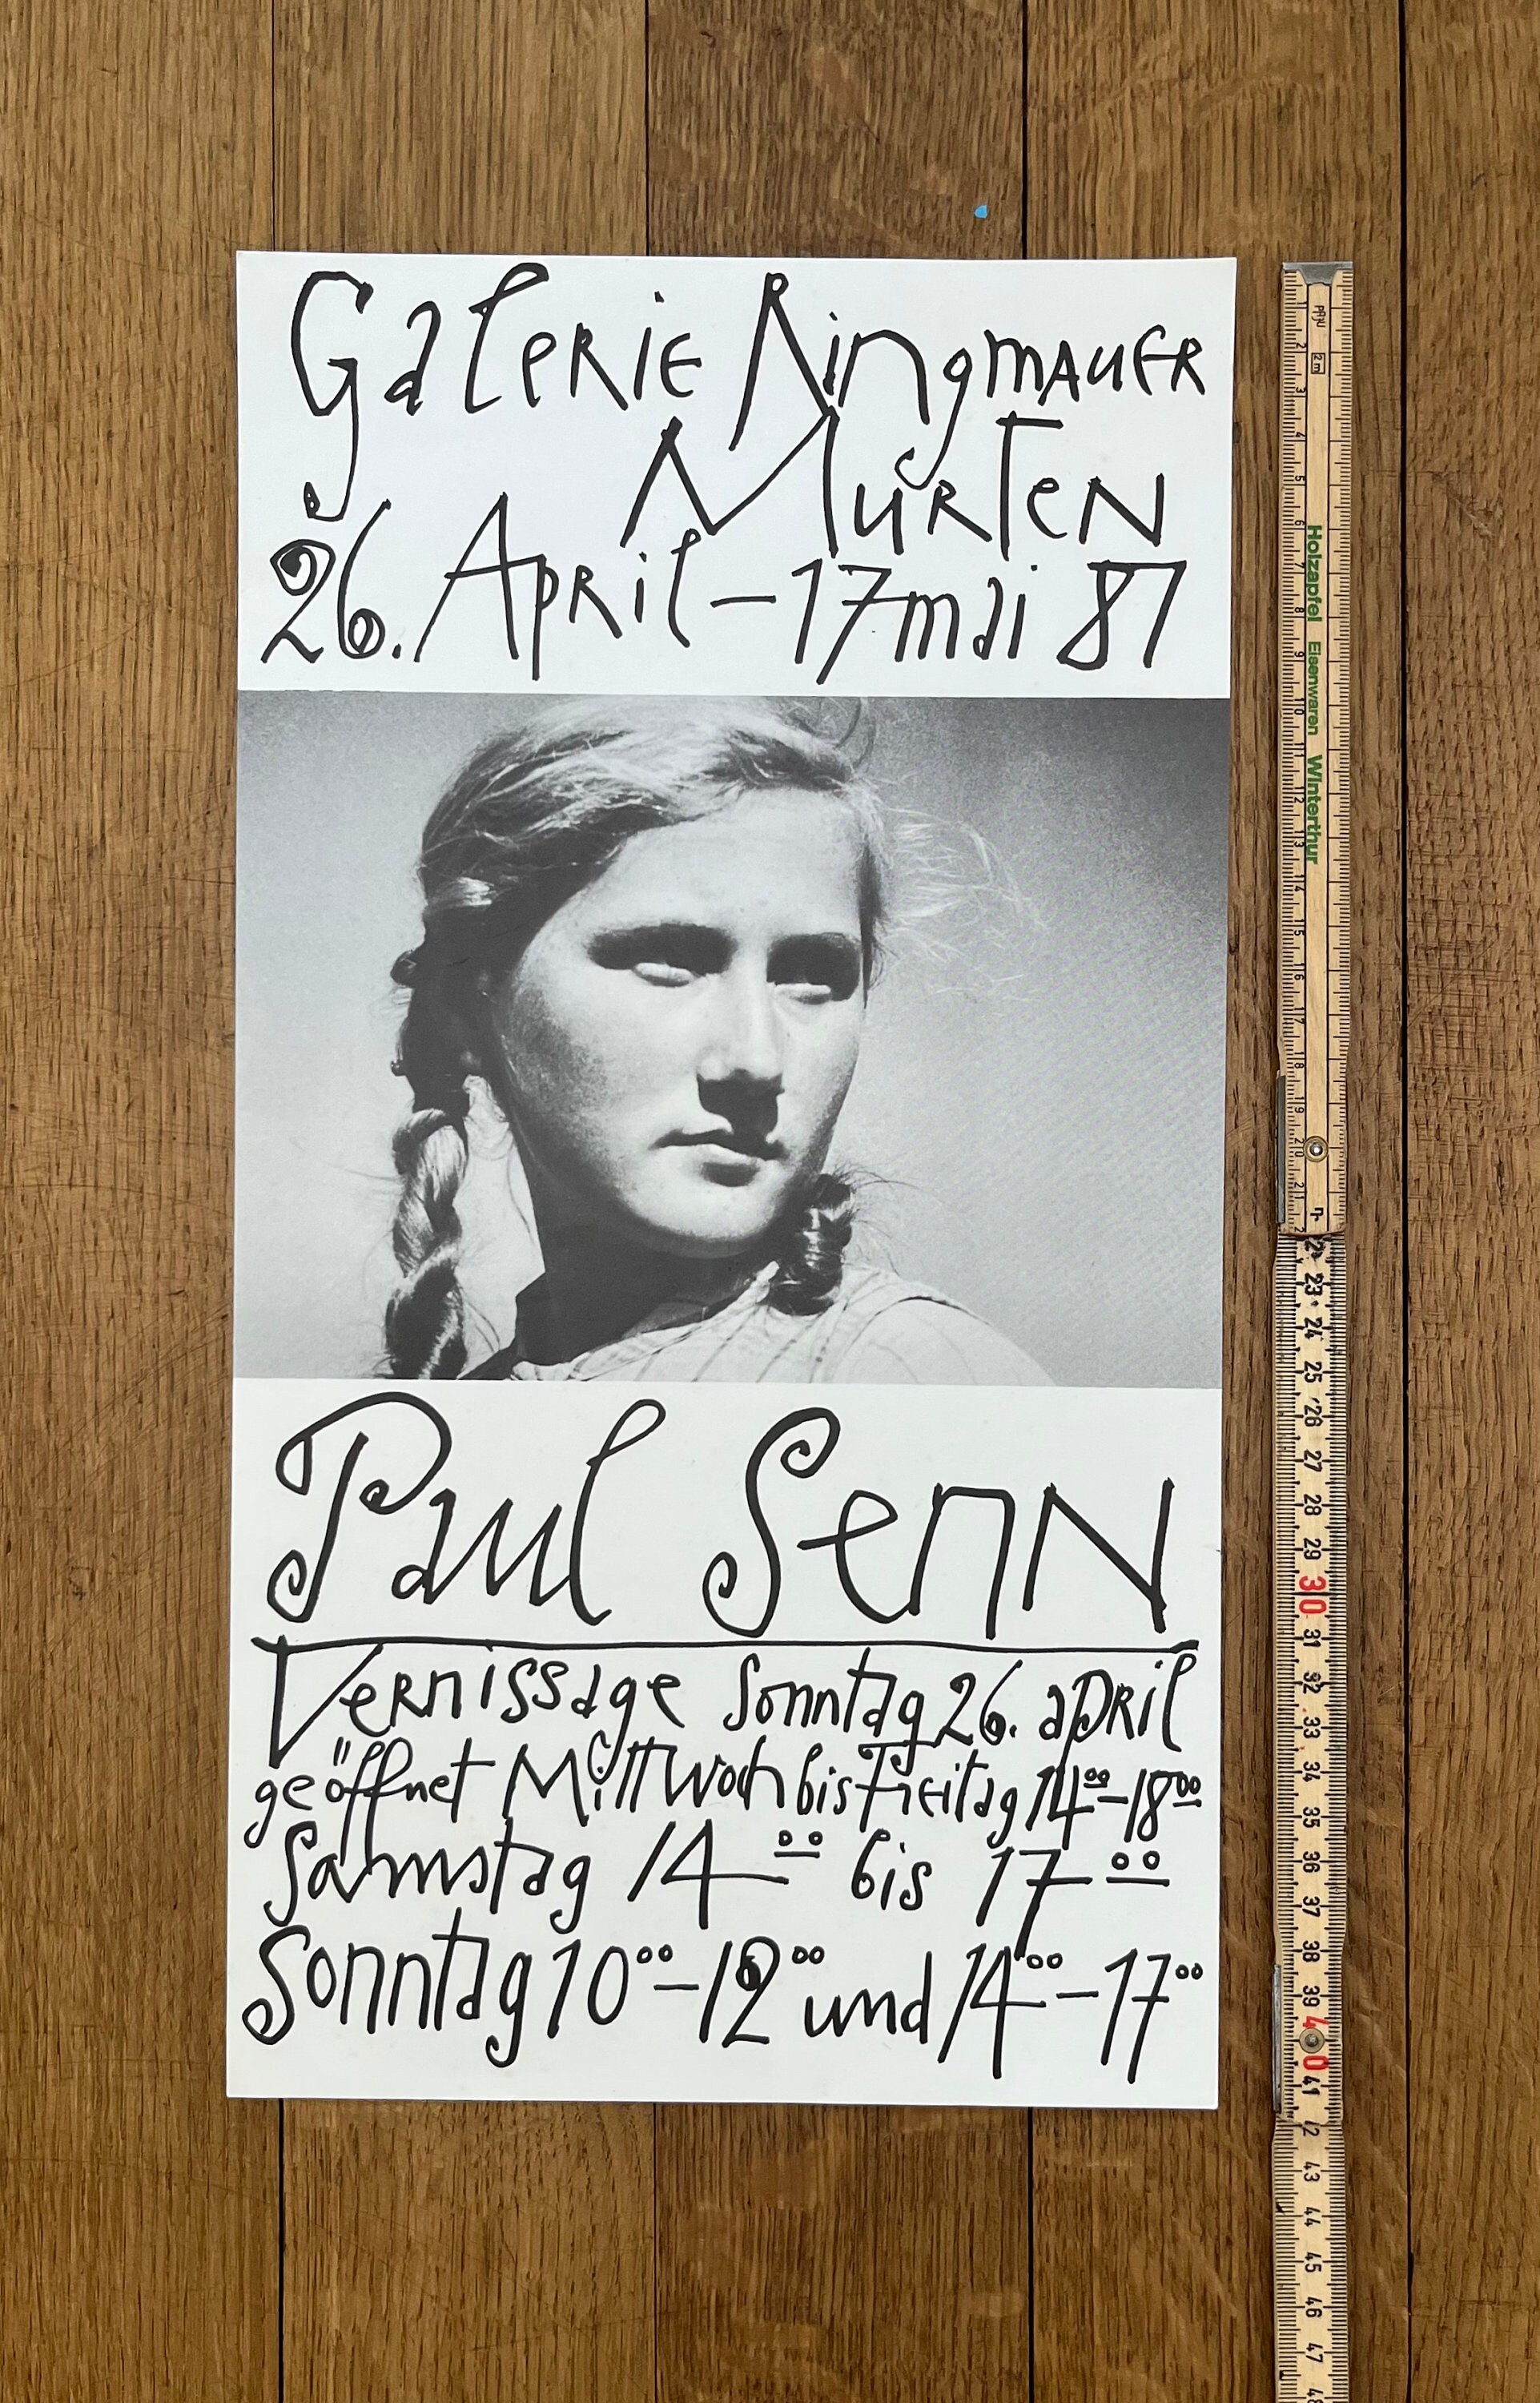 Galerie Ringmauer
Murten
26. April – 17 mai 87
Paul Senn
Vernissage Sonntag 26. april
geöffnet Mittwoch bis Freitag 14⁰⁰–18⁰⁰
Samstag 14⁰⁰ bis 17⁰⁰
Sonntag 10⁰⁰–12⁰⁰ und 14⁰⁰–17⁰⁰
2m
Holzapfel Eisenwaren Winterthur
1 2 3 4 5 6 7 8 9 10 11 12 13 14 15 16 17 18 19 20 21
23 24 25 26 27 28 29 30 31 32 33 34 35 36 37 38 39 40 41
43 44 45 46 47